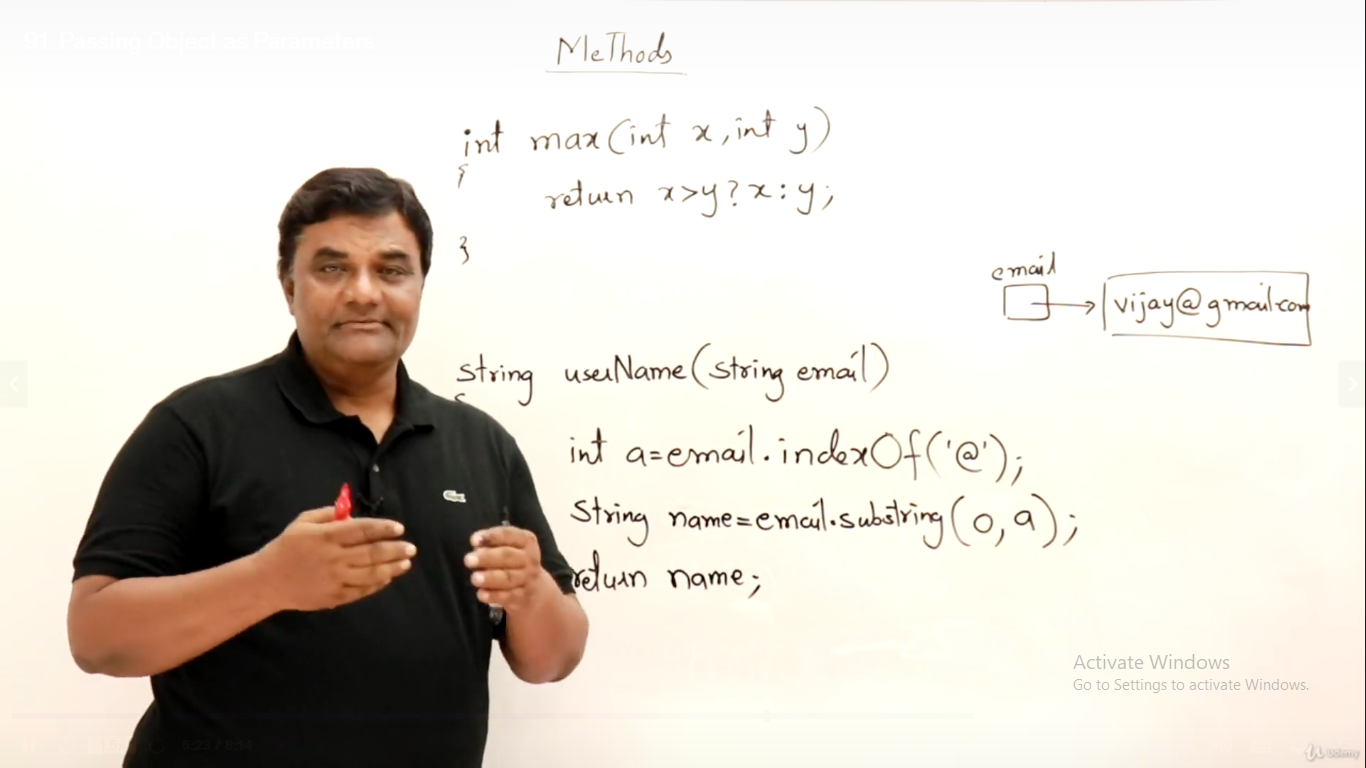 91. Passing Object as Parameters
Methods
int max(int x, int y)
{
return x>y?x:y;
}
email
vijay@gmail.com
string userName(string email)
{
int a=email.indexOf('@');
String name=email.substring(0,a);
return name;
Activate Windows
Go to Settings to activate Windows.
6:23 / 8:14
Udemy